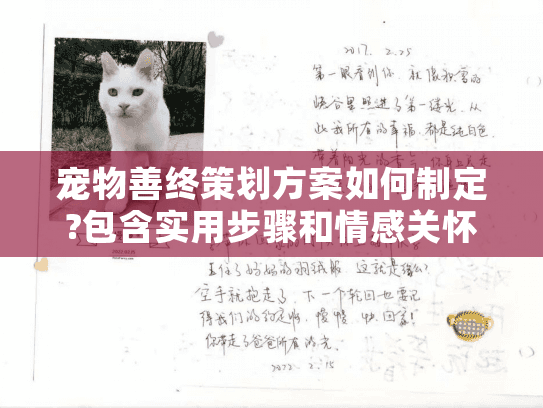 2017. 2.25
第一眼看到你,就像积雪的
峡谷里照进了第一缕光,从
此我所有的幸福,都是纯白色
宠物善终策划方案如何制定
?包含实用步骤和情感关怀
了妈妈的羽绒服,这就是缘
空手就抱走了,下一个轮回也要记
得我们的约定哦,慢慢,快回家!
你带走了爸爸所有的光.
2022. 2.15